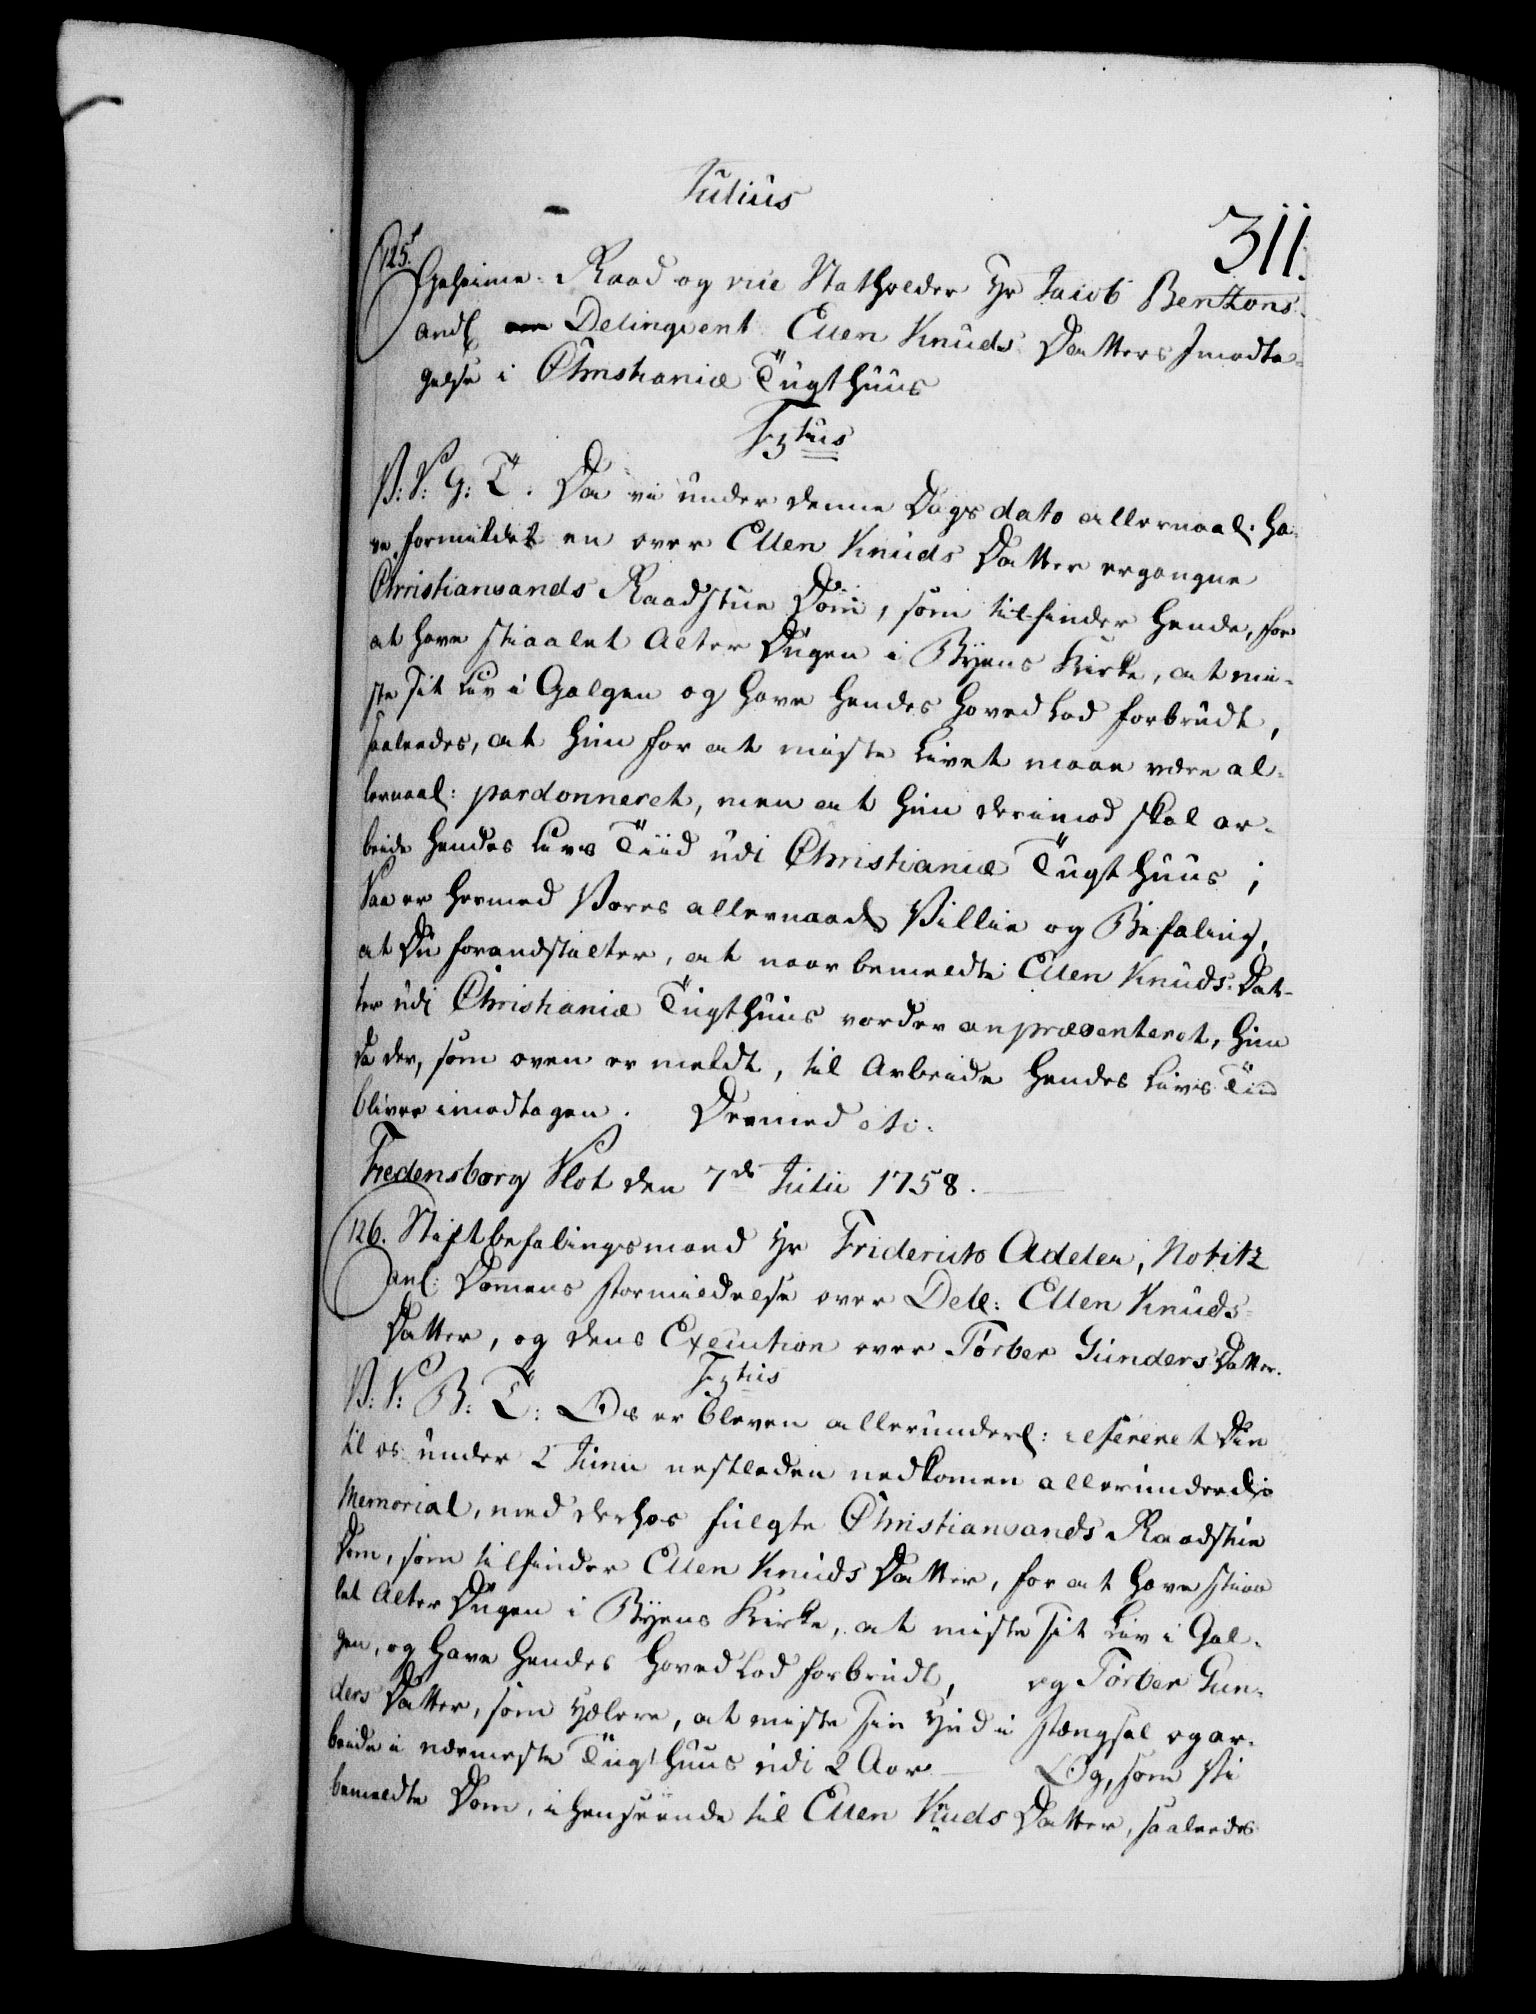 Julius
311.
125. Geheime-Raad og vice Statholder Hr Jacob Benzons
andl Delinqvent Ellen Knuds Datters Jmodta-
gelse i Christianiæ Tugthuus
V: S: G: T: Da vi under denne Dags dato allernaad: ha-
ve formildet en over Ellen Knuds Datter ergangne
Christiansands Raadstue Dom, som tilfinder hende, for
at have stiaalet Alter Dugen i Byens Kirke, at mi-
ste sit Liv i Galgen og have hendes Hoved Lod forbrudt,
saaledes, at hun for at miste Livet maae være al-
lernaad: pardonneret, men at hun derimod skal ar-
beide hendes Livs Tiid udi Christianiæ Tugthuus;
Saa er hermed Vores allernaads Villie og Befaling,
at Du foranstalter, at naar bemeldte Ellen Knuds-Dat-
ter udi Christianiæ Tugthuus vorder anpræsenteret, hun
da der, som oven er meldt, til Arbeide hendes Livs Tiid
bliver imodtagen. Dermed etc.
Fredensborg Slot den 7de Julii 1758.
126. Stiftbefalingsmand Hr Friderich Adeler, Notitz
anl: Domens Formildelse over Dele: Ellen Knuds-
Datter, og dens Execution over Torber Gunders Datter.
V: S: B: T: Os er bleven allerunderd: refereret Din
til os under 2 Junii nestleden nedkomen allerunderdig
Memorial, med derhos fulgte Christiansands Raadstue
Dom, som tilfinder Ellen Knuds Datter, for at have stiaa
let Alter Dugen i Byens Kirke, at miste sit Liv i Gal-
gen, og have hendes Hoved Lod forbrudt, og Torber Gun-
ders Datter, som Hælere, at miste sin Hud i Fængsel og ar-
beide i nærmeste Tugthuus udi 2 Aar – Og, som Vi
bemeldte Dom, i henseende til Ellen Knuds Datter, saaledes